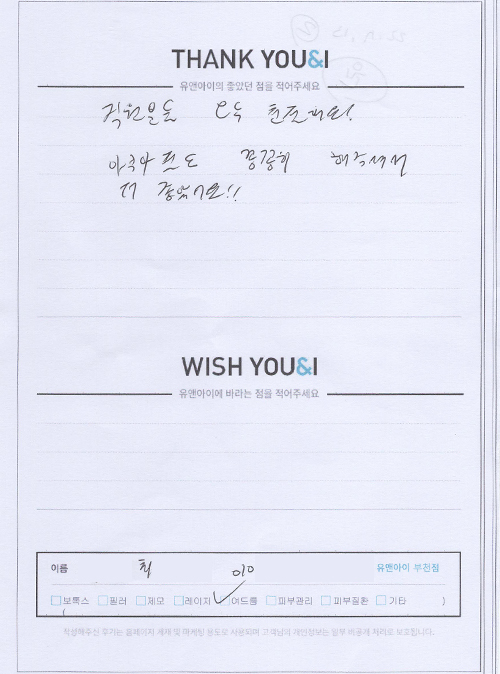 THANK YOU&I
유앤아이의 좋았던 점을 적어주세요
직원분들 모두 친절해요!
아쿠아필도 꼼꼼히 해주셔서
더 좋았어요!!
WISH YOU&I
유앤아이에 바라는 점을 적어주세요
이름 최 이이 유앤아이 부천점
보톡스 필러 제모 레이저 여드름 피부관리 피부질환 기타 )
(
작성해주신 후기는 홈페이지 게재 및 마케팅 용도로 사용되며 고객님의 개인정보는 일부 비공개 처리로 보호됩니다.